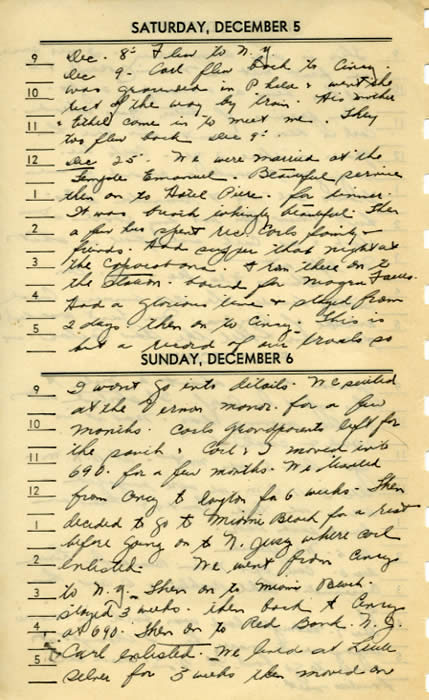 SATURDAY, DECEMBER 5
9 Dec. 8th Flew to N.Y.
Dec 9 - Carl flew back to Cincy.
10 was grounded in Phila & went the
rest of the way by train. His mother
11 & Ethel came in to meet me. They
too flew back Dec 9th.
12 Dec 25th. We were married at the
Temple Emanuel. Beautiful service
1 then on to Hotel Piere. for dinner.
It was breath takingly beautiful. Then
2 a few hrs spent rec. Carls family &
friends. And supper that night at
3 the Copacabana. & then on to
the Station. bound for Niagra Falls.
4 Had a glorious time & stayed
5 2 days then on to Cincy. This is
but a record of our travels so
SUNDAY, DECEMBER 6
9 I wont go into details. We settled
at the Vernon manor. for a few
10 months. Carls Grandparents left for
the south & Carl & I moved into
11 690. for a few months. We traveled
12 from Cincy to Dayton for 6 weeks. Then
1 decided to go to Miami Beach for a rest
before going on to N. Jersey where Carl
2 enlisted. We went from Cincy
3 to N.Y. Then on to Miami Beach.
stayed 3 weeks. then back to Cincy
4 at 690. Then on to Red Bank. N.J.
Carl enlisted. We lived at Little
5 Silver for 3 weeks then moved on